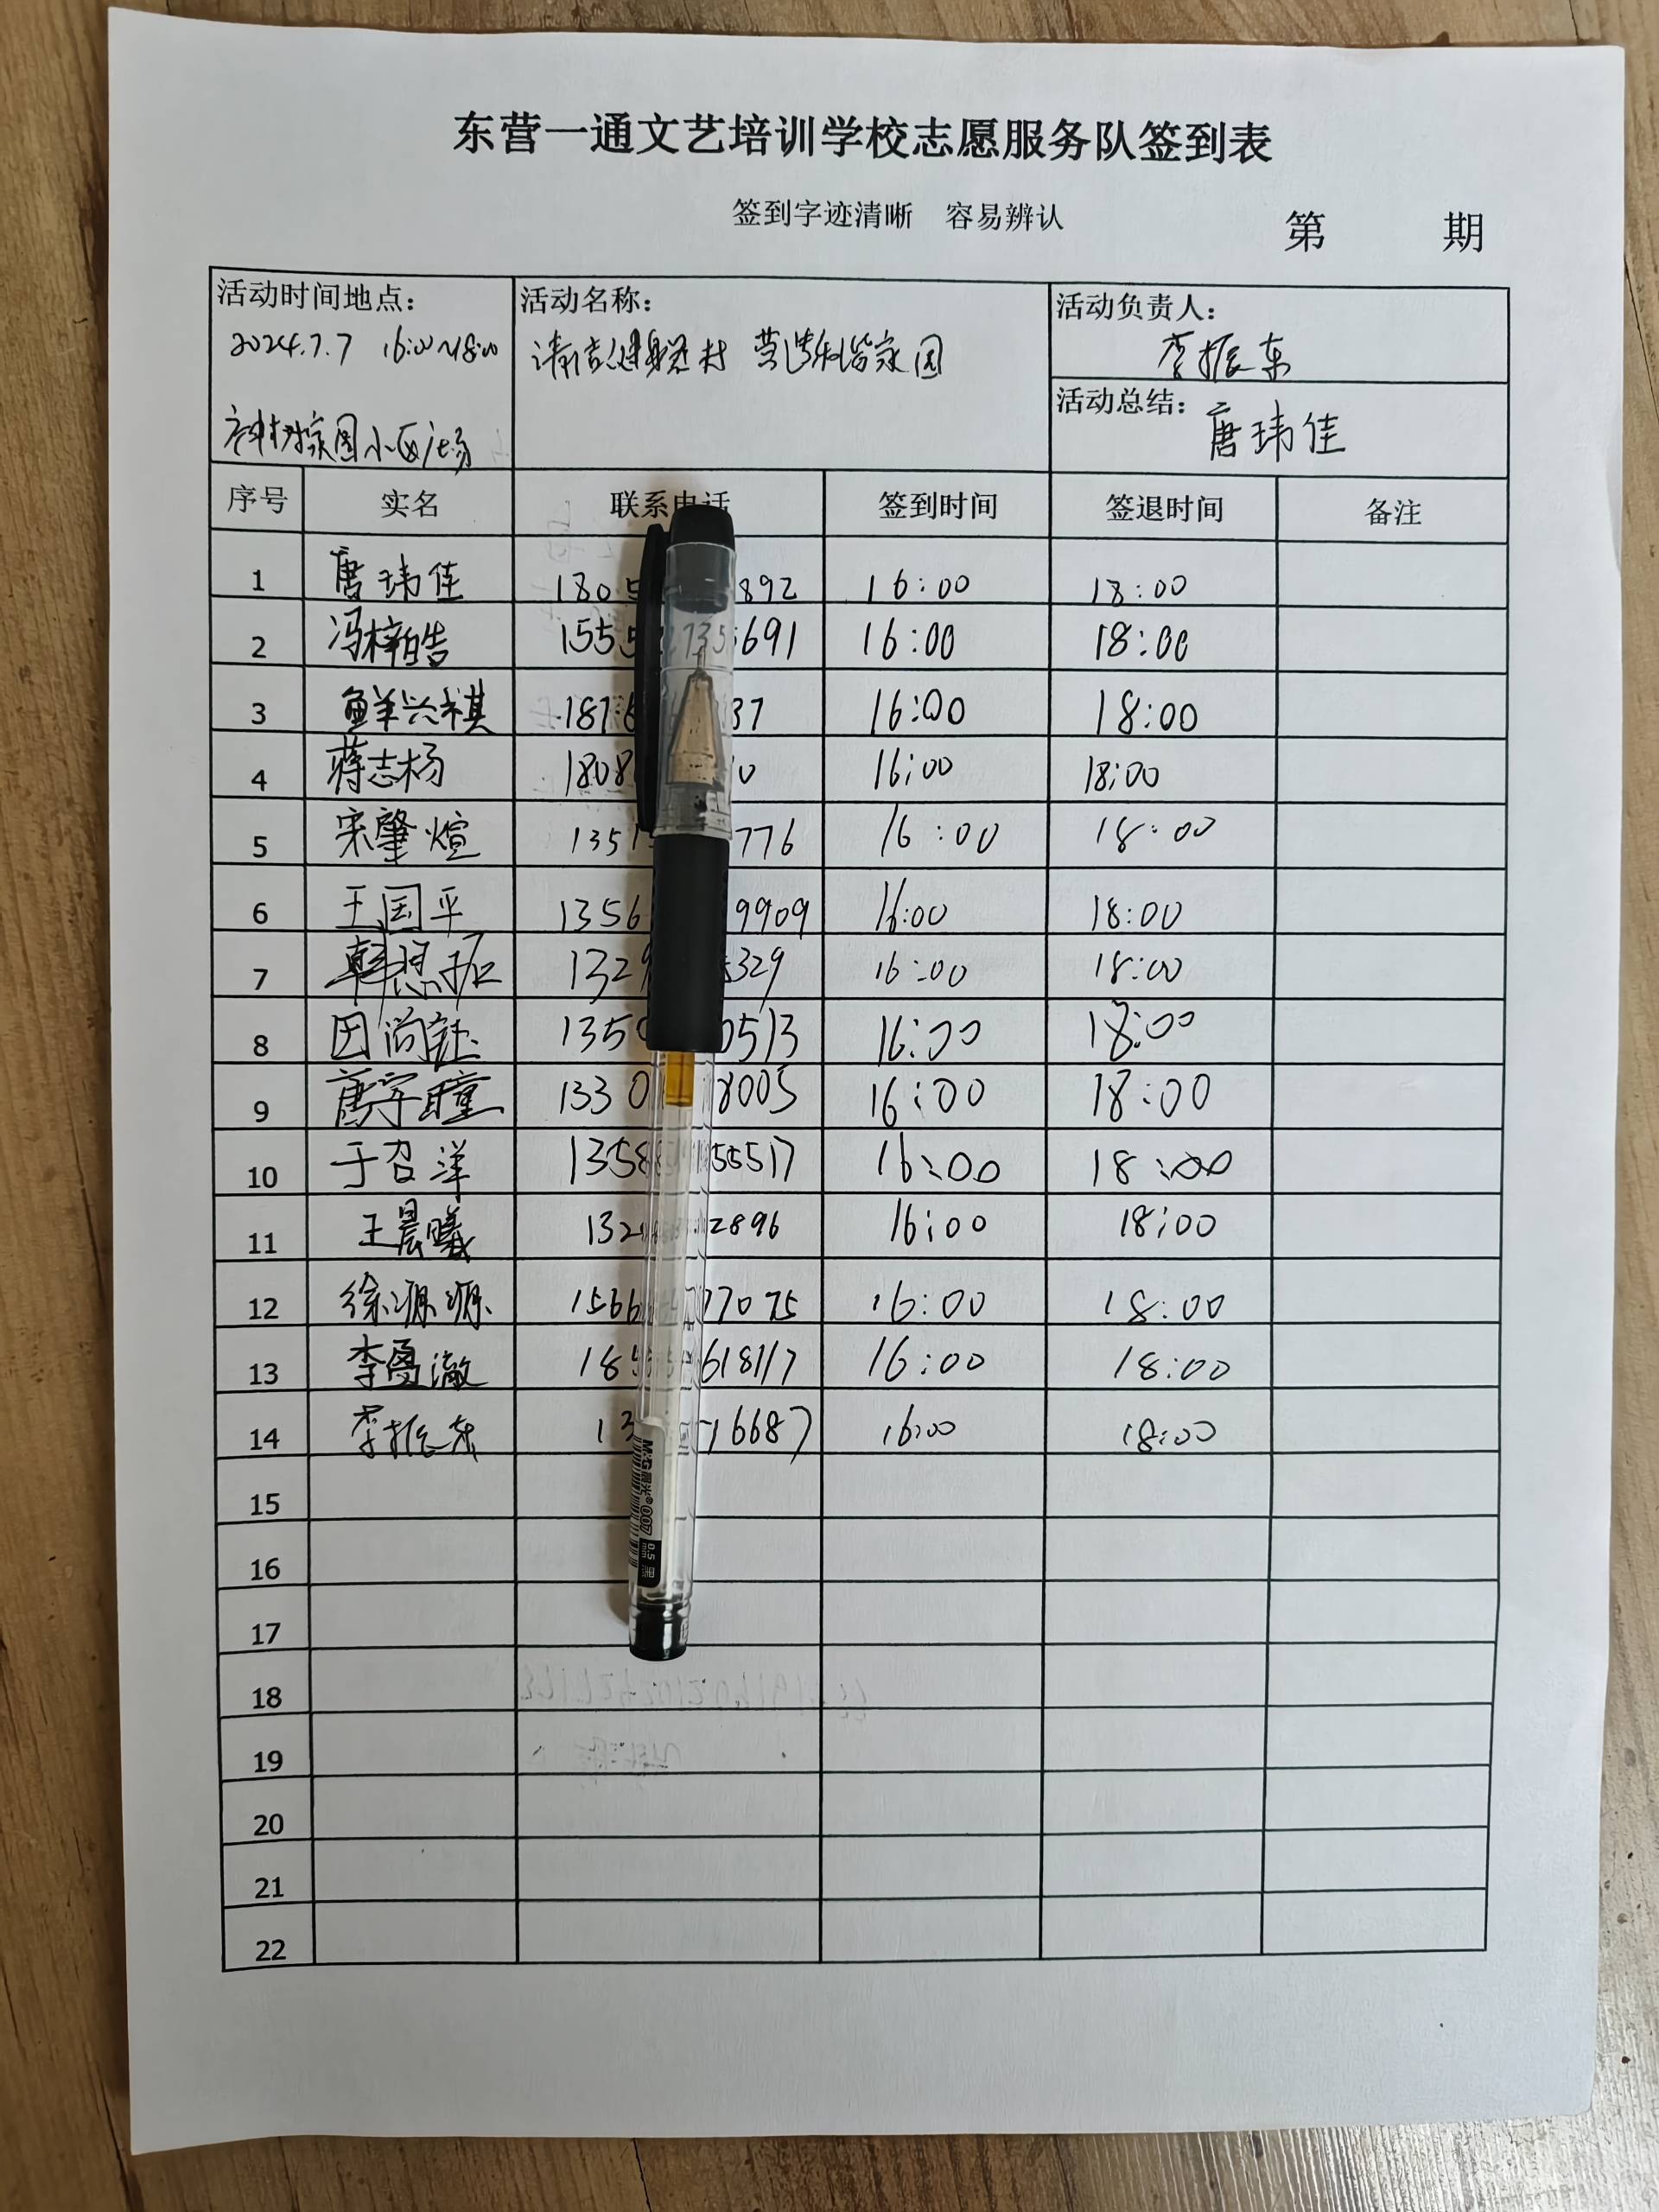 东营一通文艺培训学校志愿服务队签到表
签到字迹清晰 容易辨认
第 期
活动时间地点：
2024.7.7 16:00~18:00
小区广场
活动名称：
清洁健身器材 营造和谐家园
活动负责人：
李振东
活动总结：
唐玮佳
序号 实名 联系电话 签到时间 签退时间 备注
1 唐玮佳 1805 892 16:00 18:00
2 冯梓皓 155 691 16:00 18:00
3 鲜兴棋 187 37 16:00 18:00
4 蒋志杨 1808 0 16:00 18:00
5 宋肇煊 1351 776 16:00 18:00
6 王国平 1356 9909 16:00 18:00
7 韩恩振 1329 329 16:00 18:00
8 田尚钰 135 0513 16:00 18:00
9 唐宇瞳 1330 8005 16:00 18:00
10 于召洋 1358 55517 16:00 18:00
11 王晨曦 132 2896 16:00 18:00
12 徐源源 156 77075 16:00 18:00
13 李 澈 18 618117 16:00 18:00
14 李振东 13 16687 16:00 18:00
15
16
17
18
19
20
21
22
M&G晨光®007 0.5mm 黑